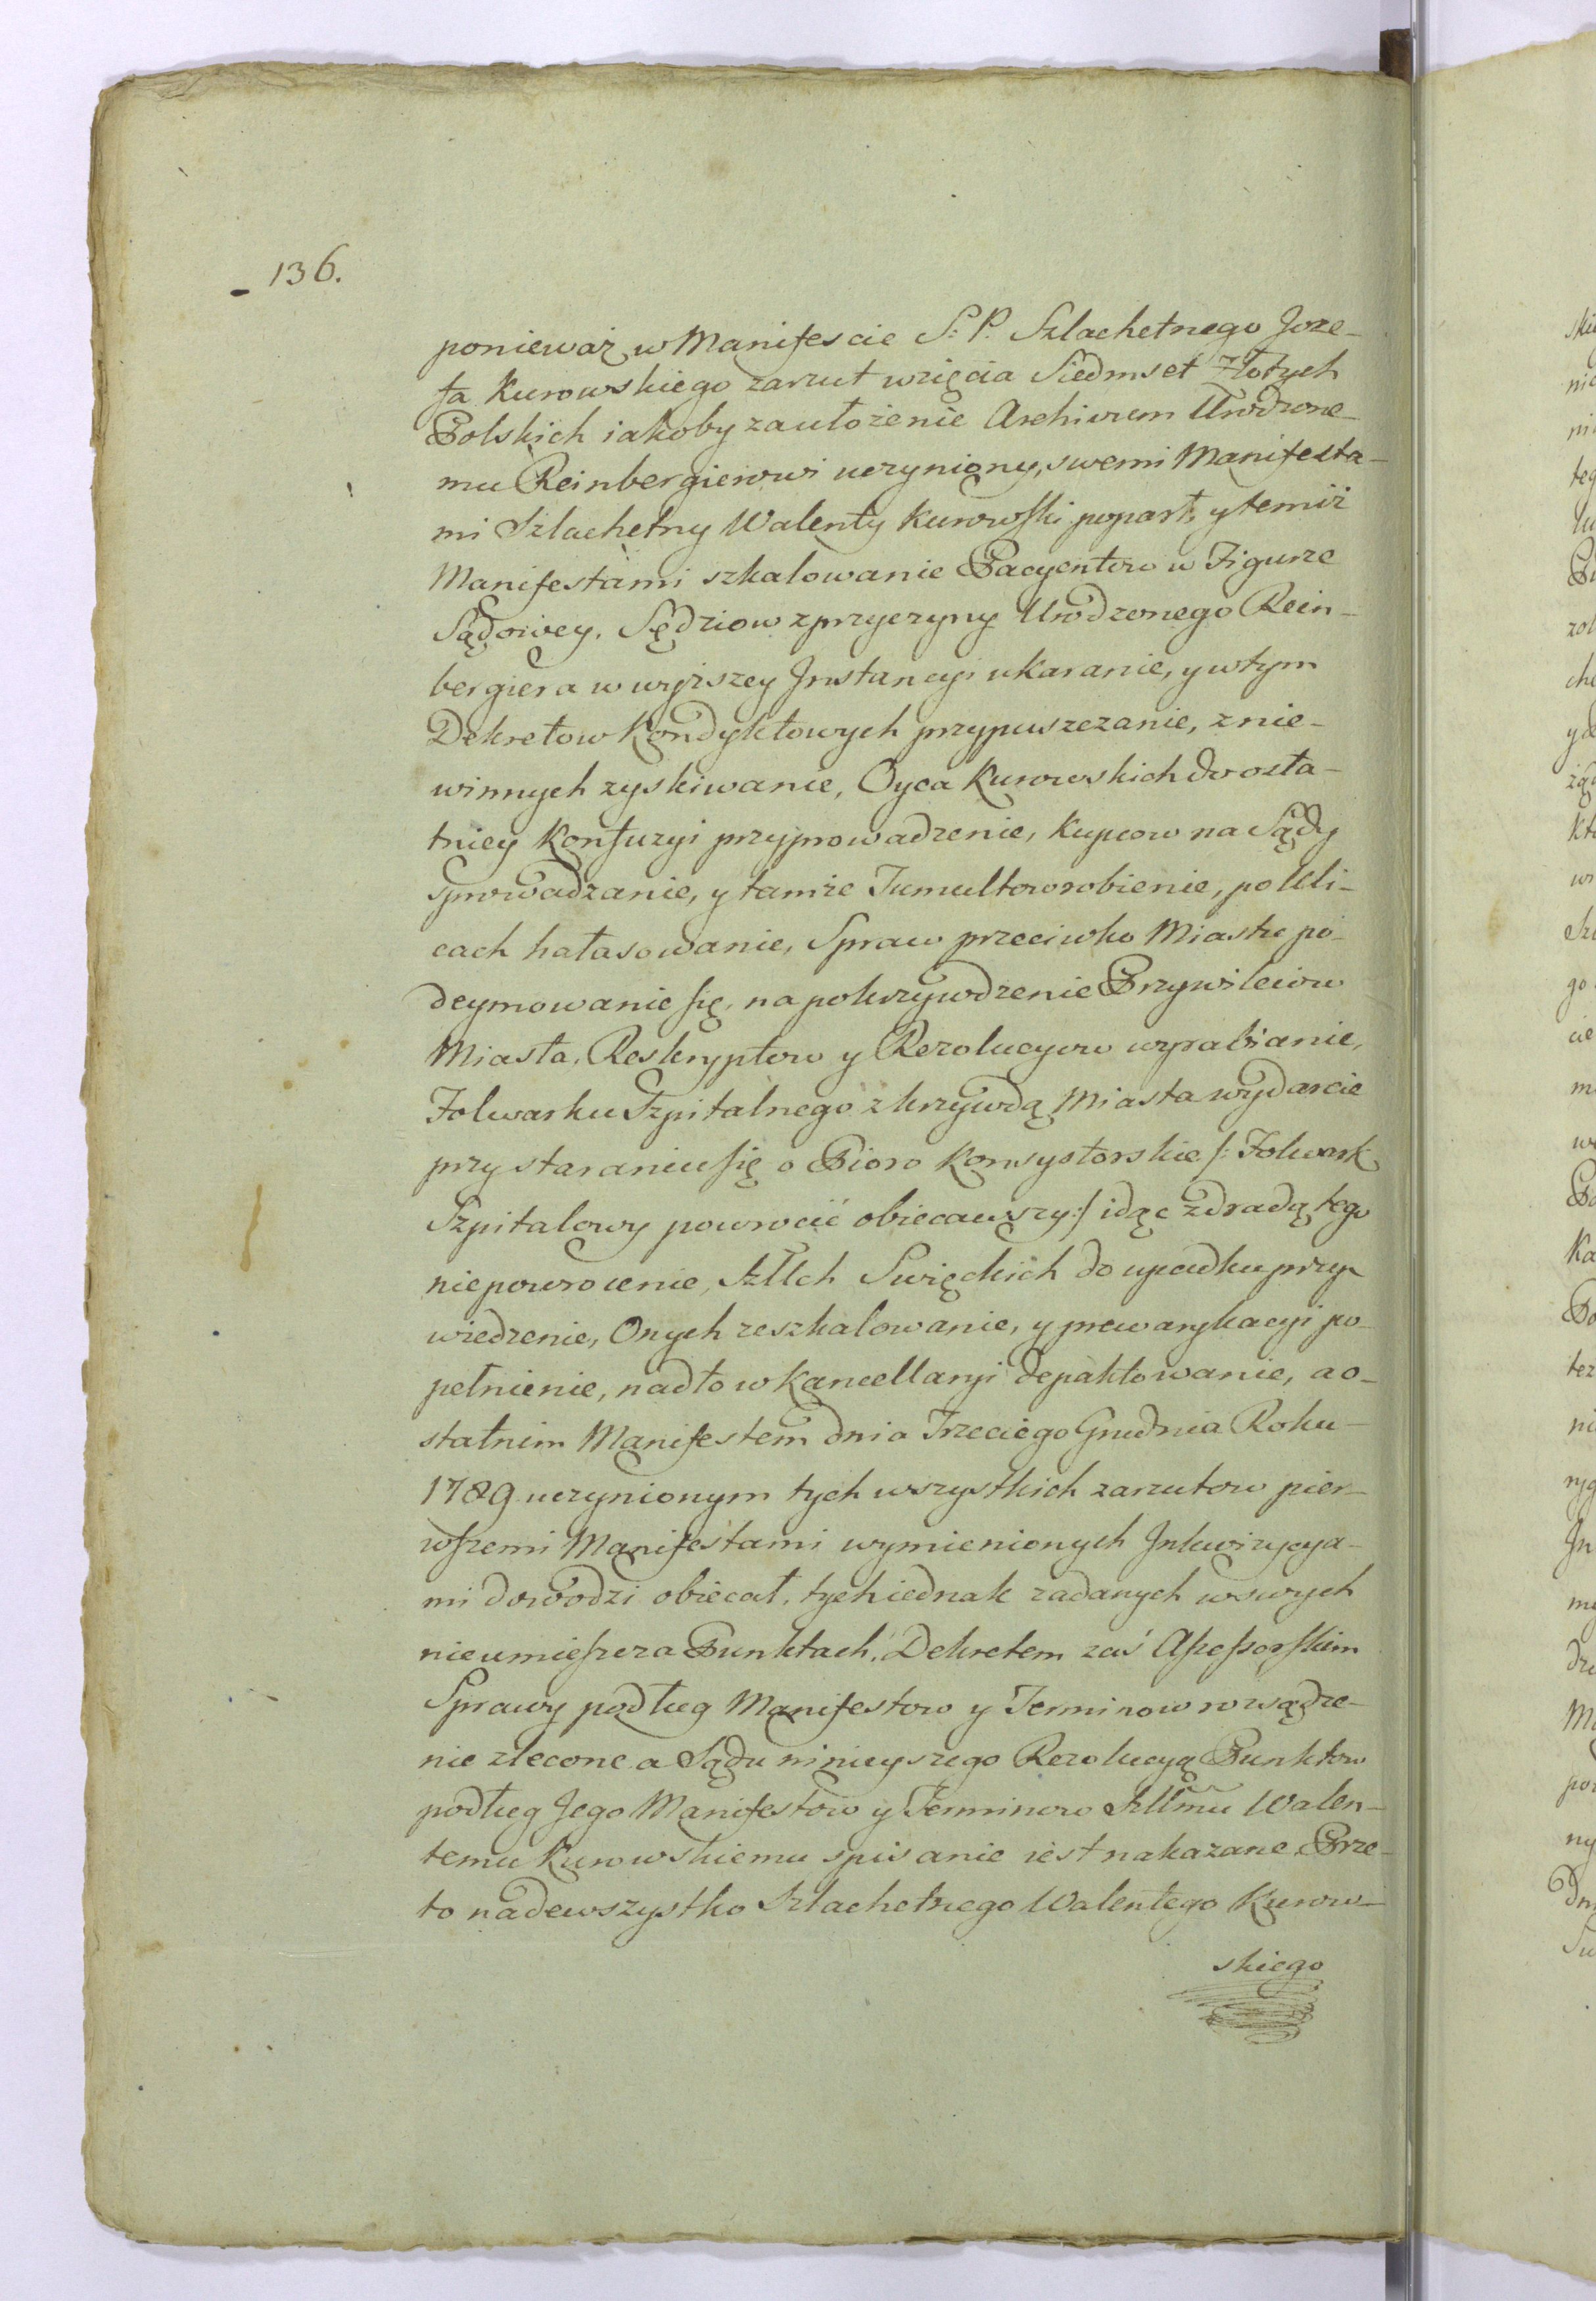 136.
poniewaz w Manifescie S: P. Szlachetnego Joze-
fa Kurowskiego zarzut wzięcia Siedmset Złotych
Polskich iakoby za ułożenie Archivum Urodzone-
mu Reinbergierowi uczyniony, swemi Manifesta-
mi Szlachetny Walenty Kurowski poparł, y temiż
Manifestami szkalowanie Pacyentow w Figurze
Sądowey, Sędziow z przyczyny Urodzonego Rein-
bergiera w wyższey Jnstancyi ukaranie, y w tym
Dekretow Kondyktowych przypuszczanie, z nie-
winnych zyskiwanie, Oyca Kurowskich do osta-
tniey Konfuzyi przyprowadzenie, Kupcow na Sądy
sprowadzanie, y tamże Tumultow robienie, po Uli-
cach hałasowanie, Spraw przeciwko Miastu po-
deymowanie się, na pokrzywdzenie Przywileiow
Miasta, Reskryptow y Rezolucyow wyrabianie,
Folwarku Szpitalnego z krzywdą Miasta wydarcie
przy staraniu się o Pioro Konsystorskie /: Folwark
Szpitalowy powrocić obiecawszy :/ idąc zdradą tego
niepowrocenie, Szltch Swięckich do upadku przy-
wiedzenie, Onych zeszkalowanie, y prewarykacyi po-
pełnienie, nadto w Kancellaryi depaktowanie, a o-
statnim Manifestem dnia Trzeciego Grudnia Roku
1789 uczynionym tych wszystkich zarzutow pier-
wszemi Manifestami wymienionych Jnkwizycya-
mi dowodzi obiecał, tych iednak zadanych w swych
nieumieszcza Punktach, Dekretem zaś Assessorskim
Sprawy podług Manifestow y Terminow rozsądze-
nie zlecone a Sądu ninieyszego Rezolucyą Punktow
podług Jego Manifestow y Terminow Szltmu Walen-
temu Kurowskiemu spisanie iest nakazane, Prze-
to nadewszystko Szlachetnego Walentego Kurow-
skiego